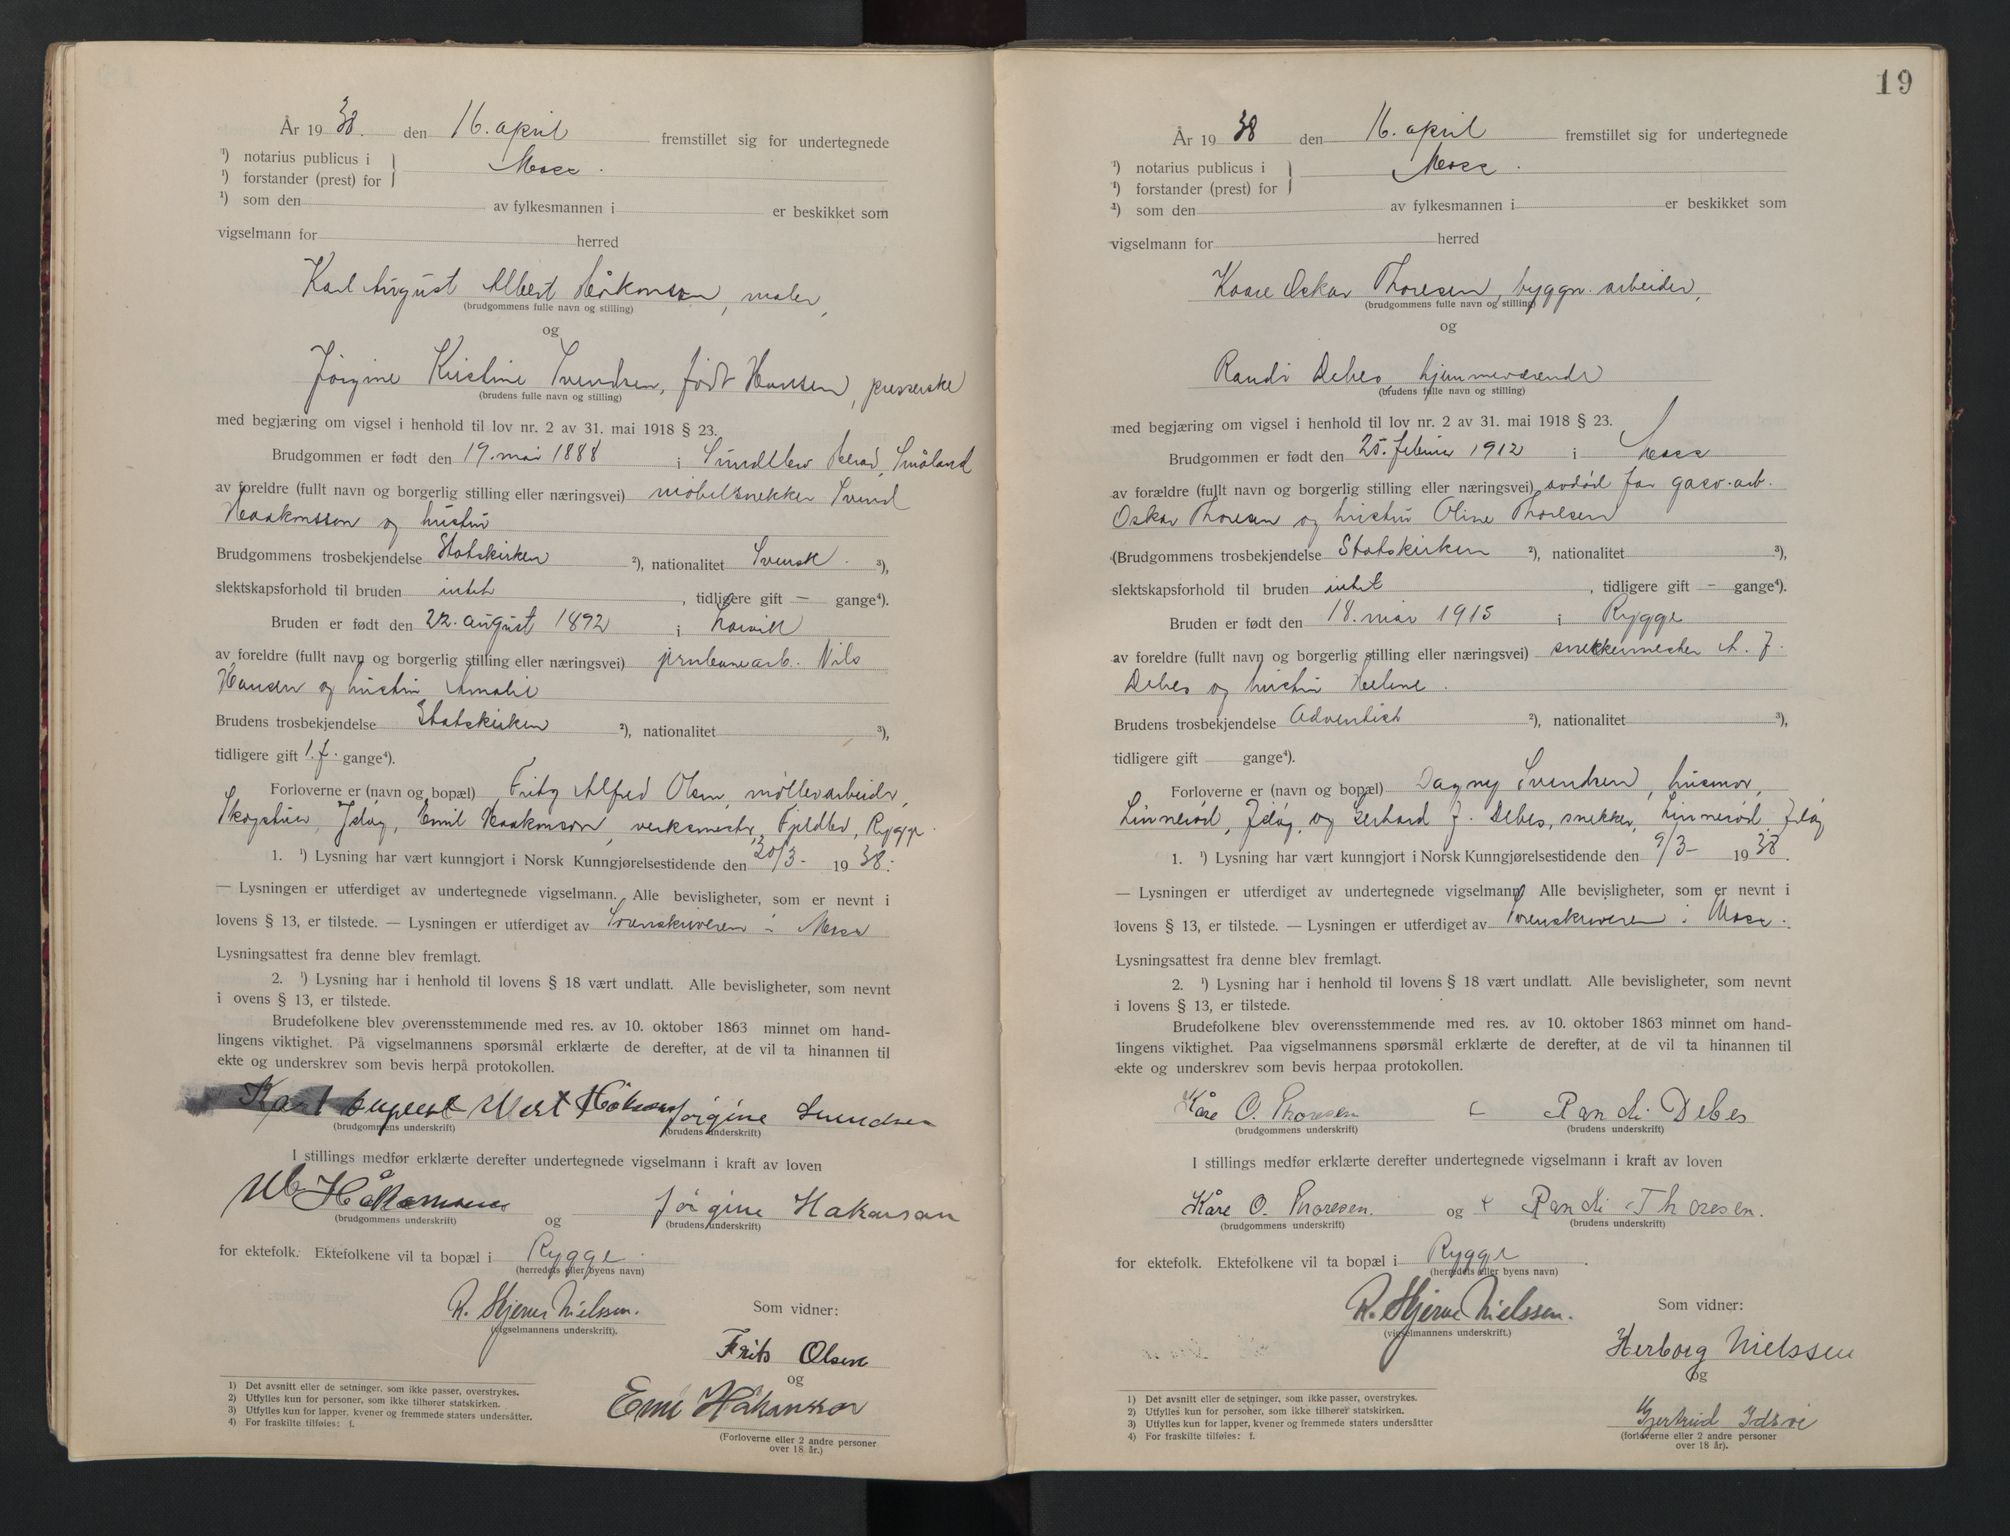 År 19 38. den 16. april fremstillet sig for undertegnede
¹) notarius publicus i } Moss.
¹) forstander (prest) for
¹) som den av fylkesmannen i er beskikket som
vigselmann for herred
Karl August Albert Håkonson, maler,
(brudgommens fulle navn og stilling)
og
Jørgine Kristine Svendsen, født Hansen, presserske
(brudens fulle navn og stilling)
med begjæring om vigsel i henhold til lov nr. 2 av 31. mai 1918 § 23.
Brudgommen er født den 19. mai 1888 i Småland
av foreldre (fullt navn og borgerlig stilling eller næringsvei) møbelsnekker Svend
Haakonsson og hustru
Brudgommens trosbekjendelse Statskirken ²), nationalitet Svensk. ³),
slektskapsforhold til bruden intet, tidligere gift — gange⁴).
Bruden er født den 22. august 1892 i Larvik
av foreldre (fullt navn og borgerlig stilling eller næringsvei) jernbanearb. Nils
Hansen og hustru Amalie
Brudens trosbekjendelse Statskirken ²), nationalitet ³),
tidligere gift 1. f. gange⁴).
Forloverne er (navn og bopæl) Fritz Alfred Olsen, møllearbeider,
Skogstuen, Jeløy, Emil Haakonson, verksmester, Fjeldlev, Rygge.
1. ¹) Lysning har vært kunngjort i Norsk Kunngjørelsestidende den 30/3- 19 38:
— Lysningen er utferdiget av undertegnede vigselmann. Alle bevisligheter, som er nevnt i
lovens § 13, er tilstede. — Lysningen er utferdiget av Sorenskriveren i Moss
Lysningsattest fra denne blev fremlagt.
2. ¹) Lysning har i henhold til lovens § 18 vært undlatt. Alle bevisligheter, som nevnt
i ovens § 13, er tilstede.
Brudefolkene blev overensstemmende med res. av 10. oktober 1863 minnet om hand-
lingens viktighet. På vigselmannens spørsmål erklærte de derefter, at de vil ta hinannen til
ekte og underskrev som bevis herpå protokollen.
Karl August Albert Håkonson Jørgine Svendsen
(brudgommens underskrift) (brudens underskrift)
I stillings medfør erklærte derefter undertegnede vigselmann i kraft av loven
Håkonson og Jørgine Hakonson
(brudgommens underskrift) (brudens underskrift)
for ektefolk. Ektefolkene vil ta bopæl i Rygge.
(herredets eller byens navn)
R. Hjerm Nielssen. Som vidner:
(vigselmannens underskrift).
Frits Olsen
og
Emil Håkansson
(Forloverne eller 2 andre personer
over 18 år.)
1) Det avsnitt eller de setninger, som ikke passer, overstrykes.
2) Utfylles kun for personer, som ikke tilhører statskirken.
3) Utfylles kun for lapper, kvener og fremmede staters undersåtter.
4) For fraskilte tilføies: f.
19
År 19 38 den 16. april fremstillet sig for undertegnede
¹) notarius publicus i } Moss.
¹) forstander (prest) for
¹) som den av fylkesmannen i er beskikket som
vigselmann for herred
Kaare Oskar Thoresen, byggn. arbeider,
(brudgommens fulle navn og stilling)
og
Randi Debes, hjemmeværende
(brudens fulle navn og stilling)
med begjæring om vigsel i henhold til lov nr. 2 av 31. mai 1918 § 23.
Brudgommen er født den 25. februar 1912 i Moss
av forældre (fullt navn og borgerlig stilling eller næringsvei) avdød far gasv. arb.
Oskar Thoresen og hustru Oline Thoresen
(Brudgommens trosbekjendelse Statskirken ²), nationalitet ³),
slektskapsforhold til bruden intet, tidligere gift — gange⁴).
Bruden er født den 18. mai 1915 i Rygge
av foreldre (fullt navn og borgerlig stilling eller næringsvei) snekkermester A. J.
Debes og hustru Helene.
Brudens trosbekjendelse Adventist ²), nationalitet ³),
tidligere gift — gange⁴).
Forloverne er (navn og bopæl) Dagny Svendsen, husmor,
Linnerød, Jeløy, og Gerhard J. Debes, snekker, Linnerød, Jeløy
1. ¹) Lysning har vært kunngjort i Norsk Kunngjørelsestidende den 9/3- 19 38.
— Lysningen er utferdiget av undertegnede vigselmann. Alle bevisligheter, som er nevnt i
lovens § 13, er tilstede. — Lysningen er utferdiget av Sorenskriveren i Moss.
Lysningsattest fra denne blev fremlagt.
2. ¹) Lysning har i henhold til lovens § 18 vært undlatt. Alle bevisligheter, som nevnt
i lovens § 13, er tilstede.
Brudefolkene blev overensstemmende med res. av 10. oktober 1863 minnet om hand-
lingens viktighet. Paa vigselmannens spørsmål erklærte de derefter, at de vil ta hinannen til
ekte og underskrev som bevis herpaa protokollen.
Kåre O. Thoresen Randi Debes
(brudgommens underskrift) (brudens underskrift)
I stillings medfør erklærte derefter undertegnede vigselmann i kraft av loven
Kåre O. Thoresen. og Randi Thoresen.
(brudgommens underskrift) (brudens underskrift)
for ektefolk. Ektefolkene vil ta bopæl i Rygge.
(herredets eller byens navn)
R. Hjerm Nielssen. Som vidner:
(vigselmannens underskrift.)
Herborg Nielssen
og
Gjertrud Idsøe
(forloverne eller 2 andre personer
over 18 år).
1) Det avsnitt eller de setninger, som ikke passer, overstrykes.
2) Utfylles kun for personer, som ikke tilhører statskirken.
3) Utfylles kun for lapper, kvener og fremmede staters undersåtter
4) For fraskilte tilføies: f.